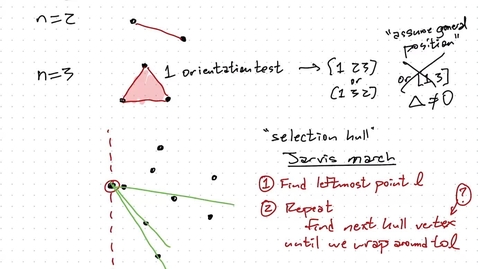 n=2
"assume general position"
n=3
1 orientation test → {1 2 3}
or
(1 3 2]
or [1 3]
△≠0
"selection hull"
Jarvis march
① Find leftmost point l
② Repeat
find next hull vertex
?
until we wrap around to l